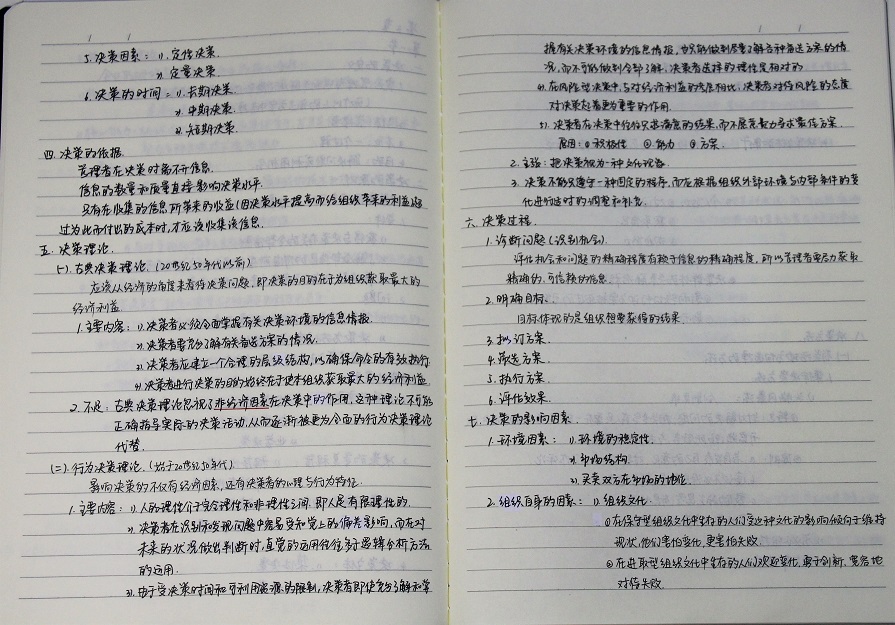 5. 决策因素：1). 定性决策.
2). 定量决策
6. 决策的时间：1). 长期决策.
2). 中期决策.
3). 短期决策.
四. 决策的依据.
管理者在决策时离不开信息.
信息的数量和质量直接影响决策水平.
只有在收集的信息所带来的收益(因决策水平提高而给组织带来的利益)超
过为此而付出的成本时,才应该收集该信息.
五. 决策理论.
(一). 古典决策理论. (20世纪50年代以前)
应该从经济的角度来看待决策问题,即决策的目的在于为组织获取最大的
经济利益.
1. 主要内容：1). 决策者必须全面掌握有关决策环境的信息情报.
2). 决策者要充分了解有关备选方案的情况.
3). 决策者应建立一个合理的层级结构,以确保命令的有效执行.
4). 决策者进行决策的目的始终在于使本组织获取最大的经济利益
2. 不足：古典决策理论忽视了非经济因素在决策中的作用,这种理论不可能
正确指导实际的决策活动,从而逐渐被更为全面的行为决策理论
代替.
(二). 行为决策理论. (始于20世纪50年代)
影响决策的不仅有经济因素,还有决策者的心理与行为特征.
1. 主要内容：1). 人的理性介于完全理性和非理性之间,即人是有限理性的.
2). 决策者在识别和发现问题中容易受知觉上的偏差影响,而在对
未来的状况做出判断时,直觉的运用往往多于逻辑分析方法
的运用.
3). 由于受决策时间和可利用资源的限制,决策者即使充分了解和掌
握有关决策环境的信息情报,也只能做到尽量了解各种备选方案的情
况,而不可能做到全部了解,决策者选择的理性是相对的
4). 在风险型决策中,与对经济利益的考虑相比,决策者对待风险的态度
对决策起着更为重要的作用.
5). 决策者在决策中往往只求满意的结果,而不愿费力寻求最佳方案.
原因：① 积极性 ② 能力 ③ 方案.
2. 主张：把决策视为一种文化现象.
3. 决策不能只遵守一种固定的程序,而应根据组织外部环境与内部条件的变
化进行适时的调整和补充.
六. 决策过程.
1. 诊断问题(识别机会).
评估机会和问题的精确程度有赖于信息的精确程度,所以管理者要尽力获取
精确的,可信赖的信息.
2. 明确目标.
目标体现的是组织想要获得的结果.
3. 拟订方案.
4. 筛选方案.
5. 执行方案.
6. 评估效果.
七. 决策的影响因素.
1. 环境因素：1). 环境的稳定性.
2). 市场结构.
3). 买卖双方在市场的地位.
2. 组织自身的因素：1). 组织文化
① 在保守型组织文化中生存的人们受这种文化的影响倾向于维持
现状,他们害怕变化,更害怕失败.
② 在进取型组织文化中生存的人们欢迎变化,勇于创新,宽容地
对待失败.